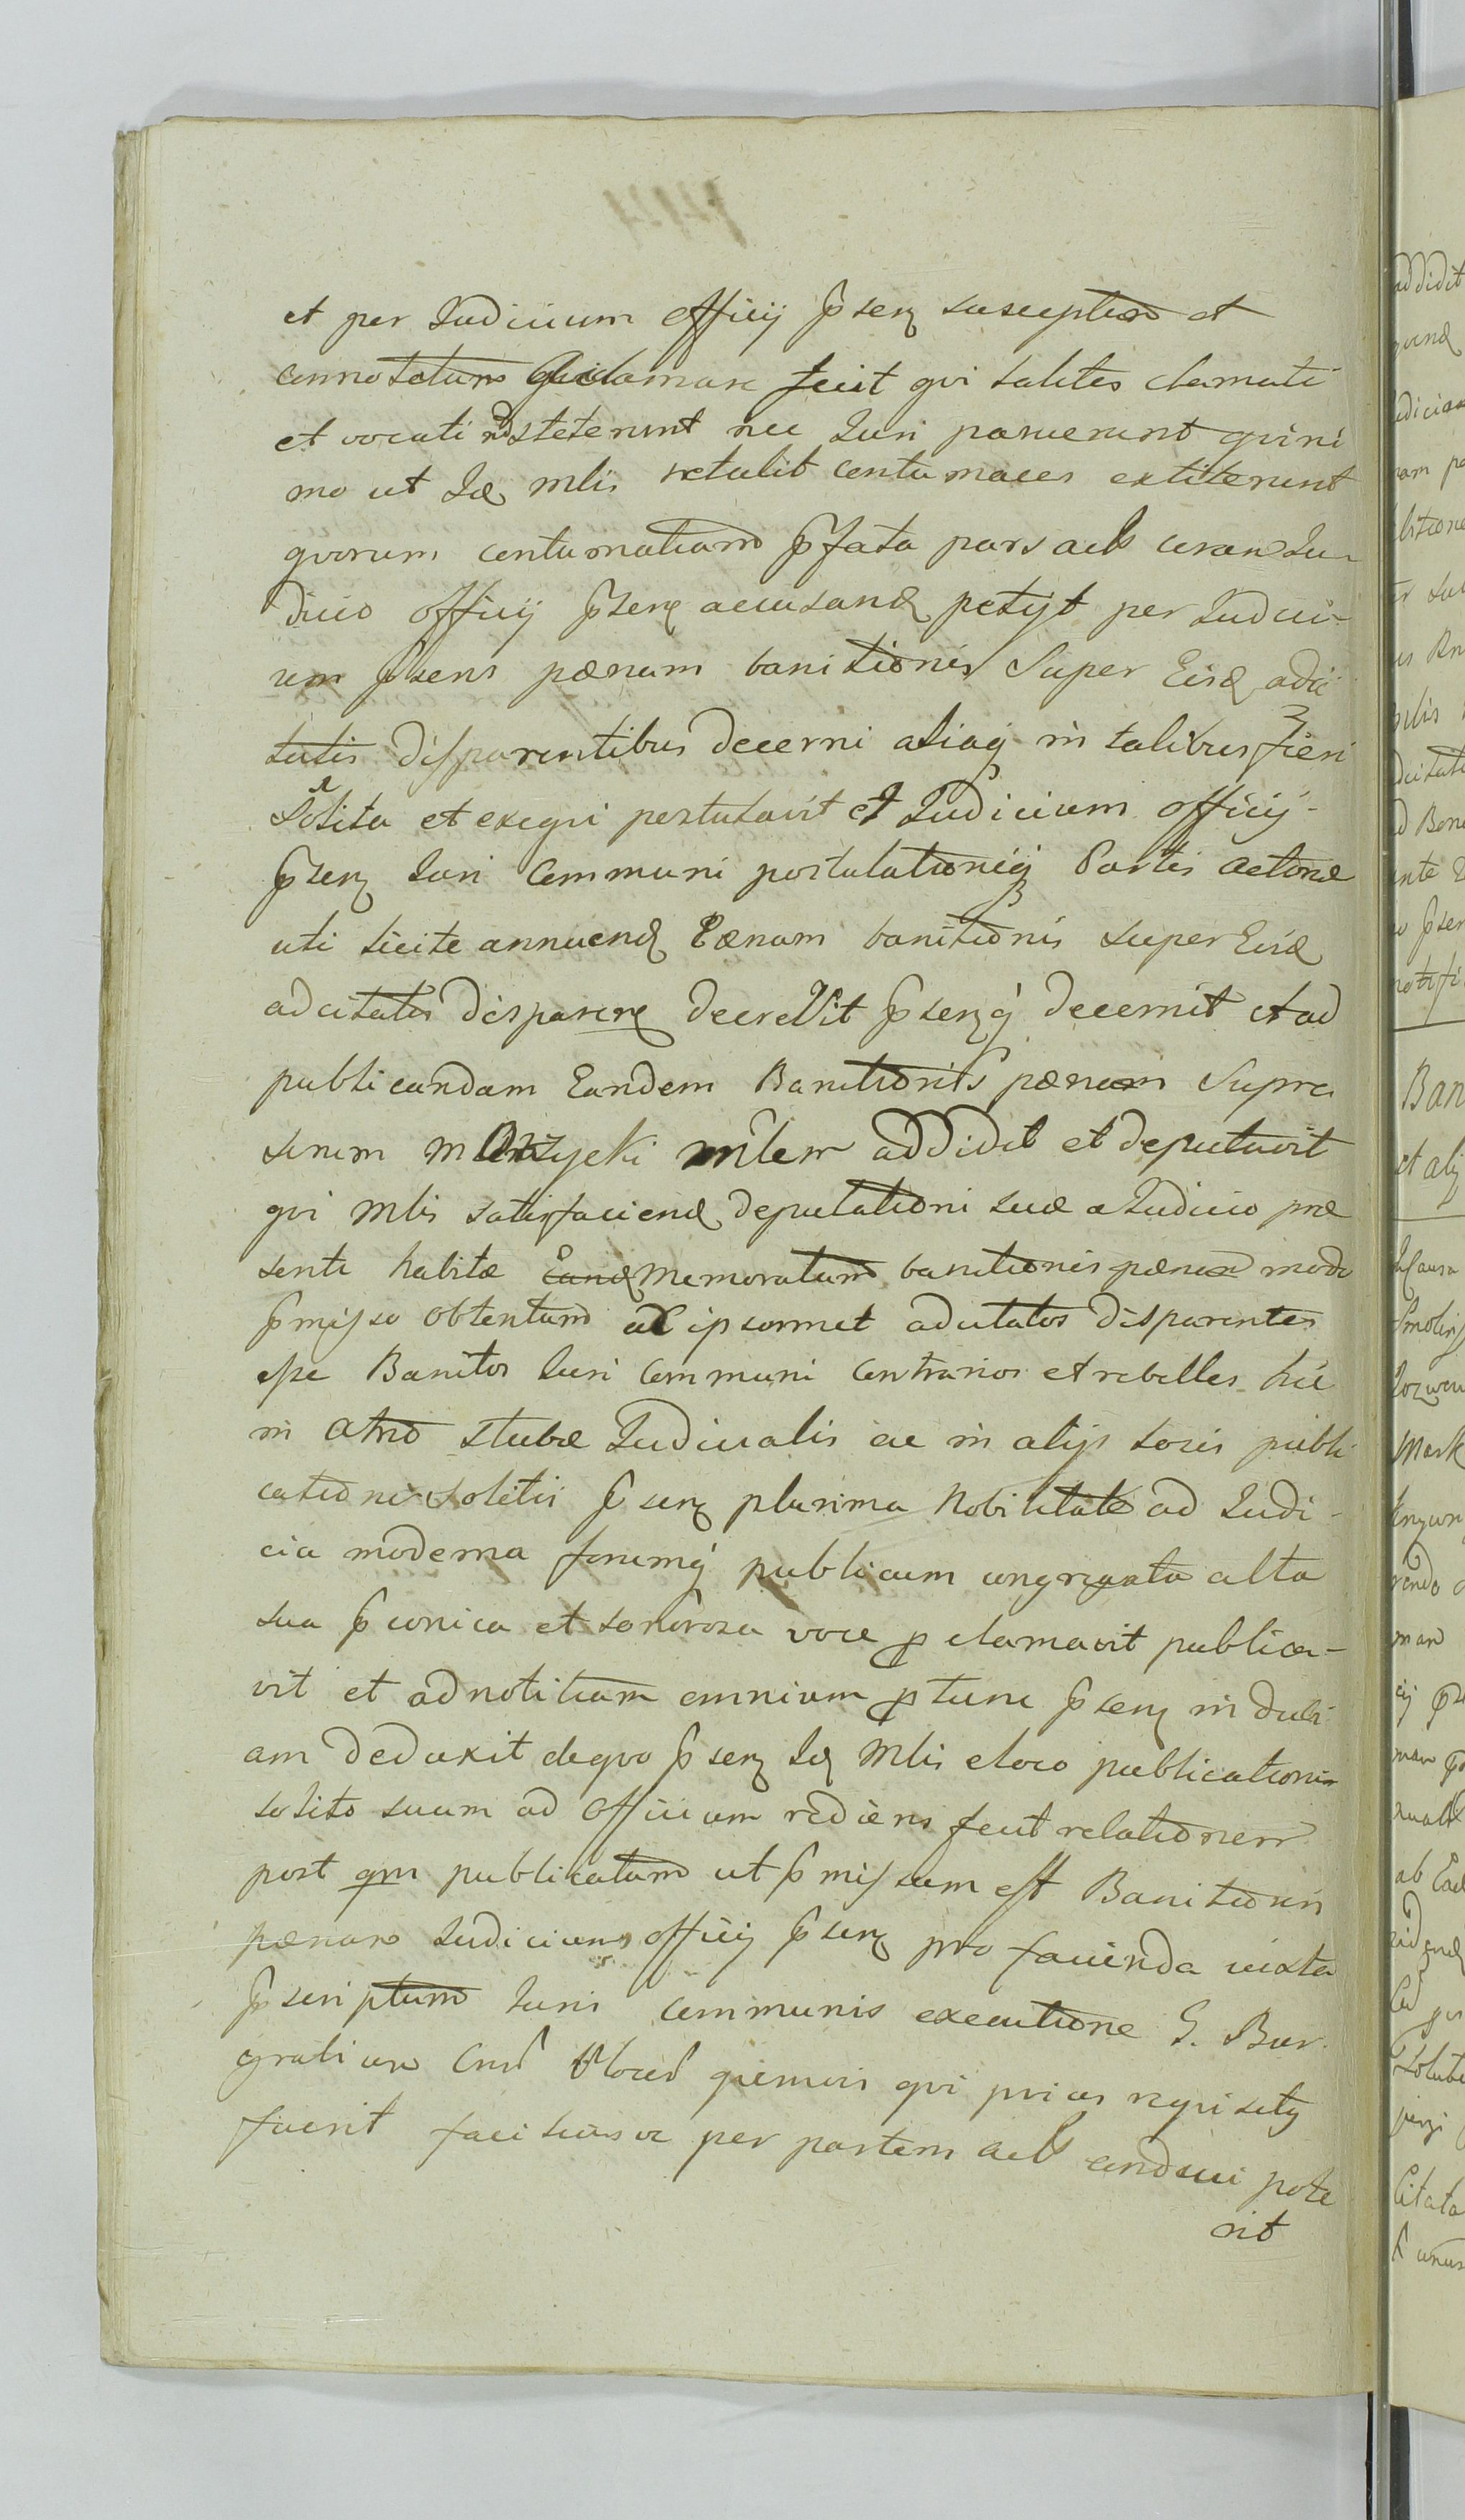 et per Judicium Officij pſenz susceptum et
connotatum acclamare fecit qvi taliter clamati
et vocati nõ steterunt nec Juri paruerunt qvini
mo ut Idē mlis retulit contumaces extiterunt
qvorum contumatiam pſfata pars act coram Ju-
dicio officij pſenz accusand petijt per Judici-
um pſens pænam banitionis Super Eisd adci
tatis disparentibus decerni aliaq in talibus fieri
Solita et exeqvi postulavit et Judicium officij
pſenz Juri communi postulationiq Partis actoræ
uti licite annuend Pænam banitionis super Eisd
adcitatis disparenz decrevit pſenzq decernit et ad
publicandam Eandem Banitionis pænam Supra
mlem addidit et deputavit
qvi Mlis satisfaciend deputationi suæ a Judicio præ
sente habitæ Eand memoratam banitionis pænam modo
pmisso obtentam ac ipsosmet adcitatos disparentes
esse Banitos Juri communi contrarios et rebelles hic
in atrio stubæ Judicialis ac in alijs locis publi
cationi solitis pſenz plurima Nobilitate ad Judi-
cia moderna forumq publicum congregata alta
sua pconica et sonorosa voce pclamavit publica-
vit et ad notitiam omnium ptunc pſenz indubi
am deduxit deqvo pſenz Idē Mlis eloco publicationis
solito suum ad Officium rediens fecit relationem
post qm publicatam ut pmissum est Banitionis
pænam Judicium officij pſenz pro facienda iuxta
pscriptum Juris communis executione G. Bur
grabium Cnsē qvemvis qvi prius reqvisitq
fuerit faciliusve per partem act adduci pote
rit